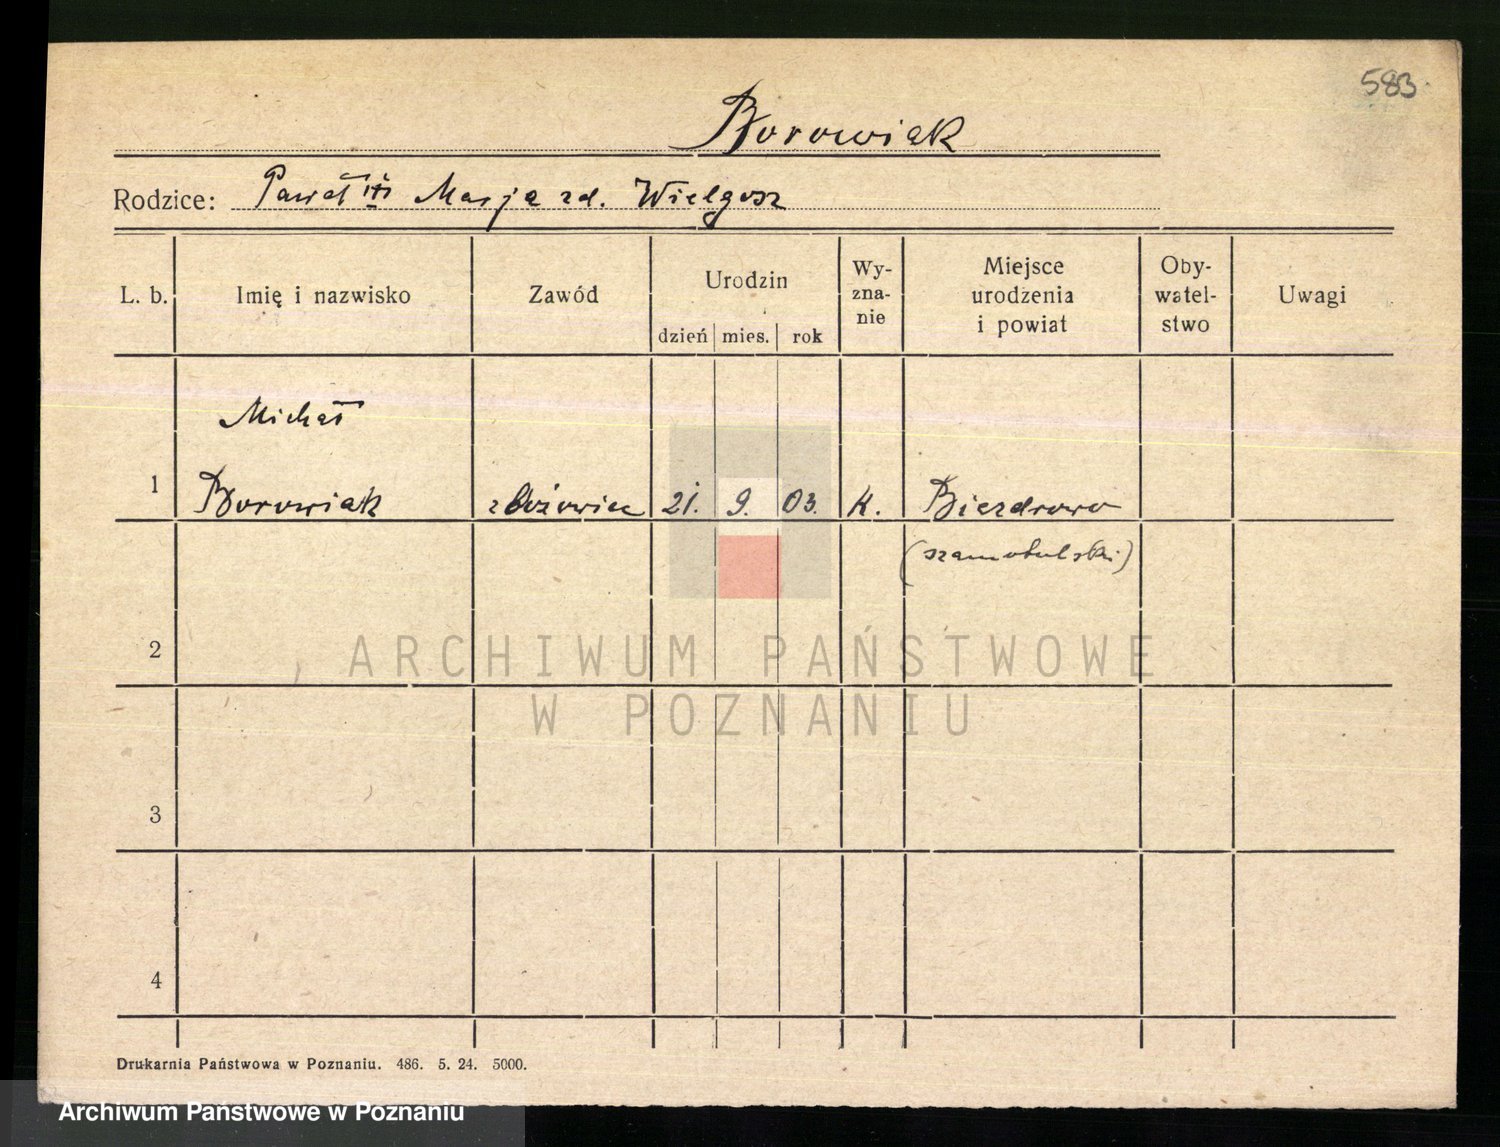 583.
Borowiak
Rodzice: Paweł Marja zd. Wielgosz
L. b. Imię i nazwisko Zawód Urodzin dzień mies. rok Wy-zna-nie Miejsce urodzenia i powiat Oby-watel-stwo Uwagi
Michał
1 Borowiak zbożowiec 21. 9. 03. K. Biezdrowo
(szamotulski)
2
ARCHIWUM PAŃSTWOWE
W POZNANIU
3
4
Drukarnia Państwowa w Poznaniu. 486. 5. 24. 5000.
Archiwum Państwowe w Poznaniu